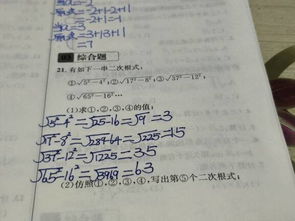 = 2+1-2+1
= -2+1-1
当a=3
原式=3+3+1
=7
03 综合题
21. 有如下一串二次根式:
①√5²-4²;②√17²-8²;③√37²-12²;
④√65²-16²…
(1)求①,②,③,④的值;
√5²-4²=√25-16=√9=3
√17²-8²=√289-64=√225=15
√37²-12²=√1225=35
√65²-16²=√3969=63
(2)仿照①,②,③,④,写出第⑤个二次根式;